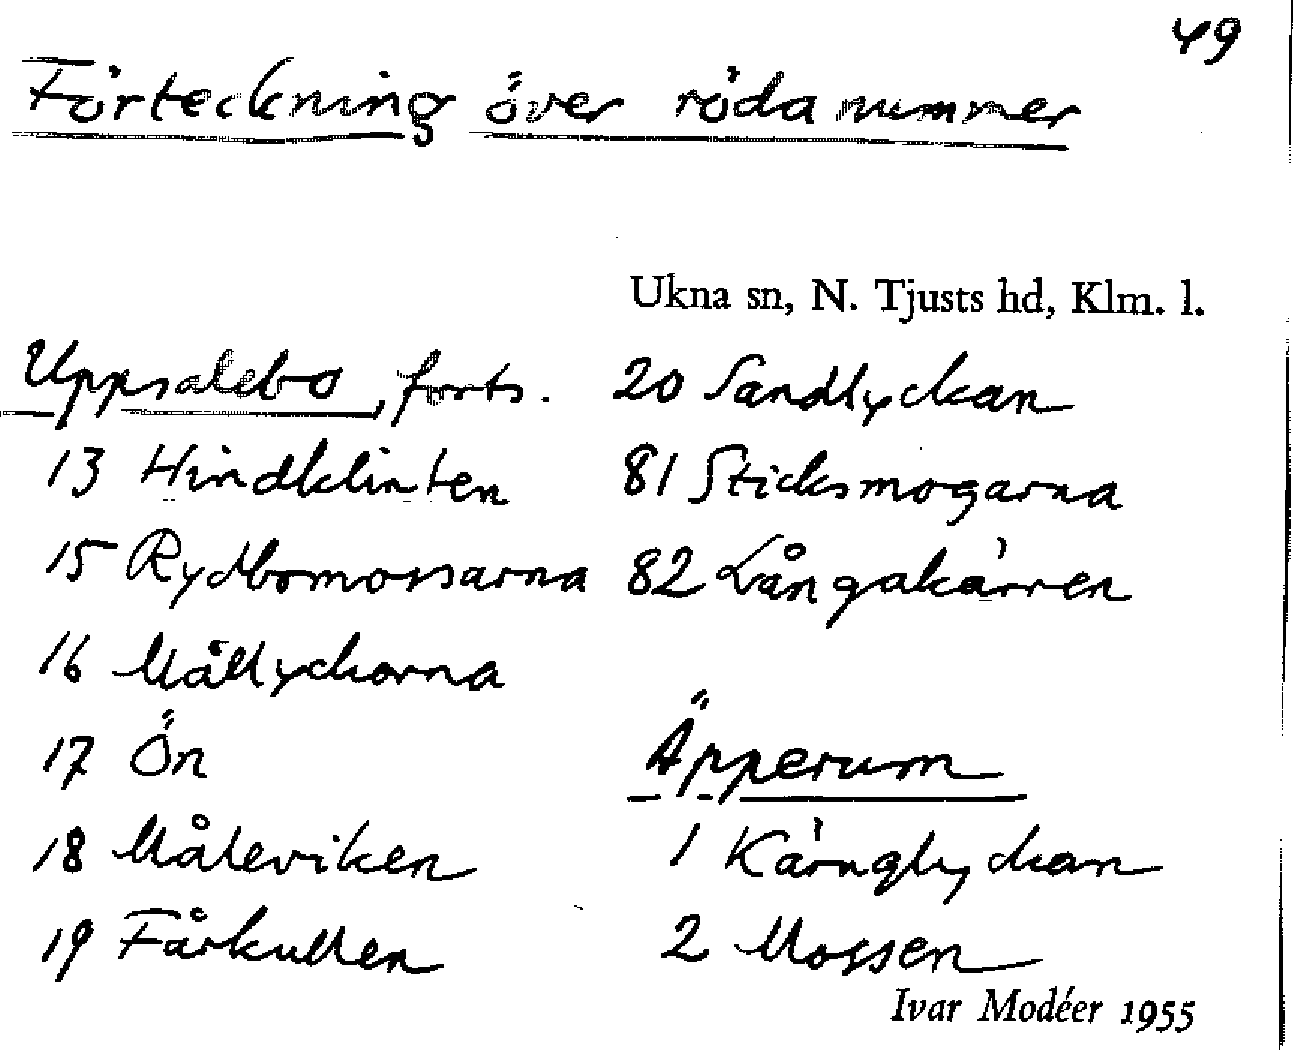 49
Förteckning över röda nummer
Ukna sn, N. Tjusts hd, Klm. l.
Uppsalebo, forts.
13 Hindklinten
15 Rydbomossarna
16 Mållyckorna
17 Ön
18 Måleviken
19 Fårkullen
20 Sandlyckan
81 Sticksmogarna
82 Långakärren
Äpperum
1 Kärnglyckan
2 Mossen
Ivar Modéer 1955